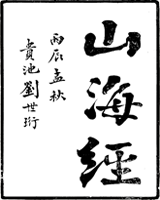 山海經
丙辰孟秋
貴池劉世珩